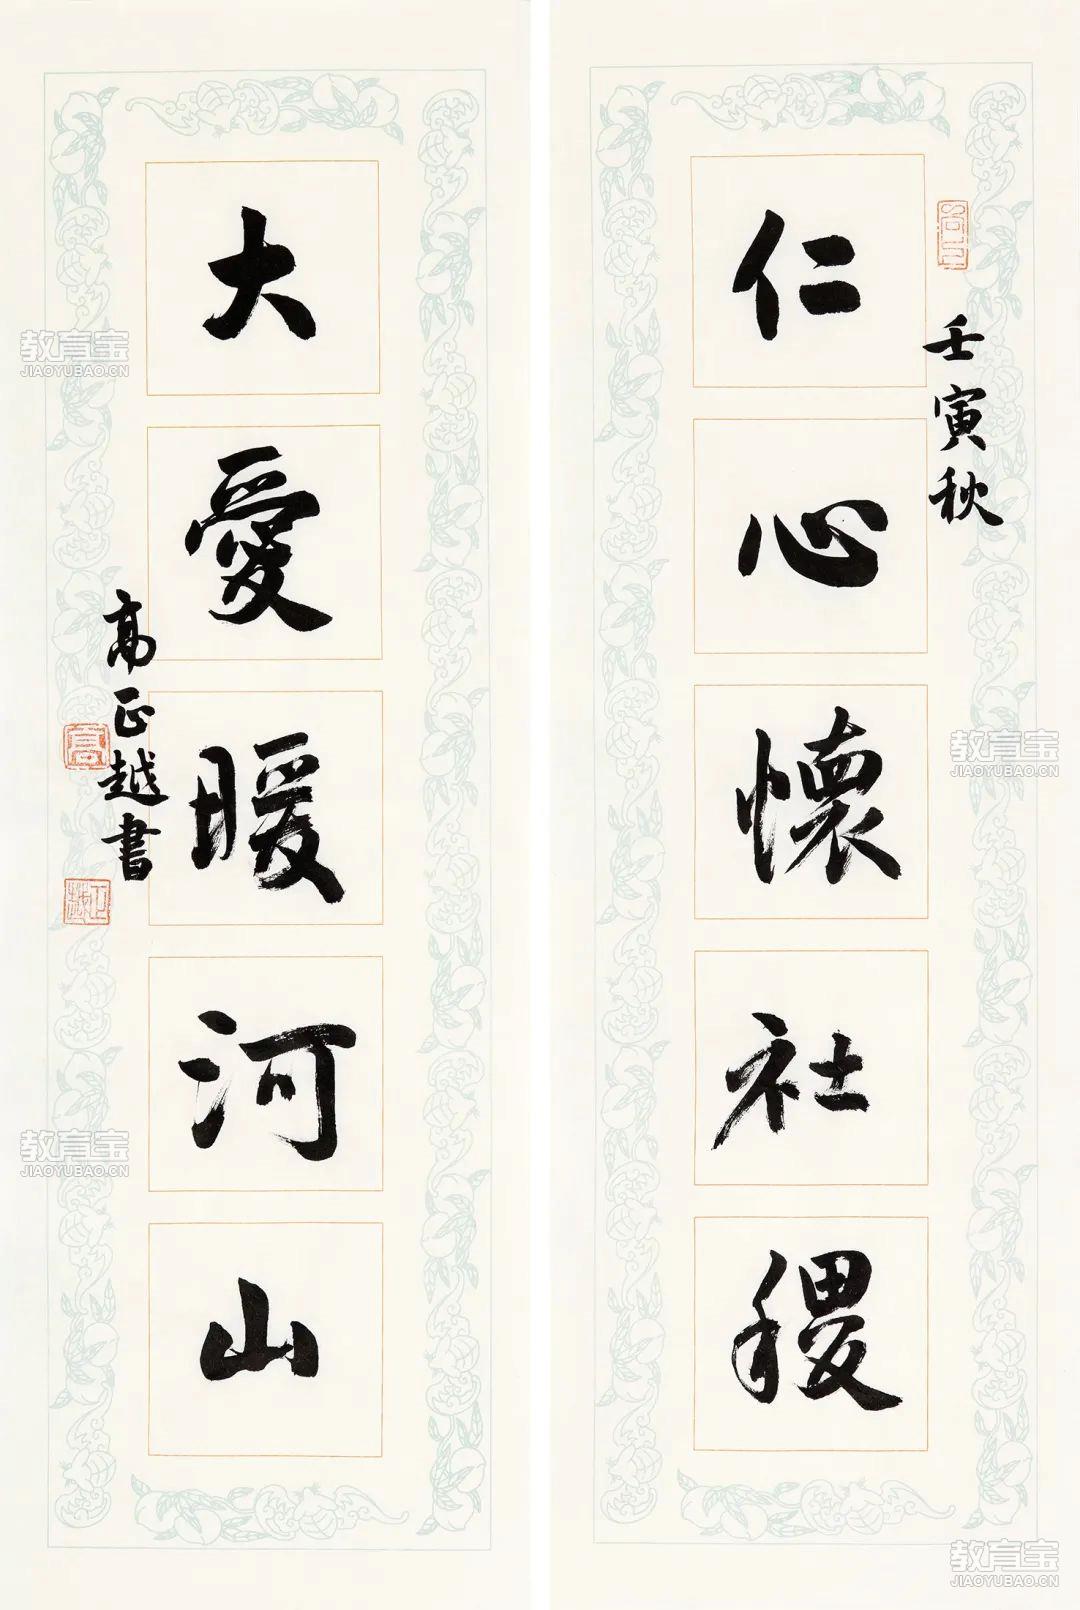 壬寅秋
仁心懷社稷
大愛暖河山
高正越書
高
教育宝
JIAOYUBAO.CN
教育宝
JIAOYUBAO.CN
教育宝
JIAOYUBAO.CN
教育宝
JIAOYUBAO.CN